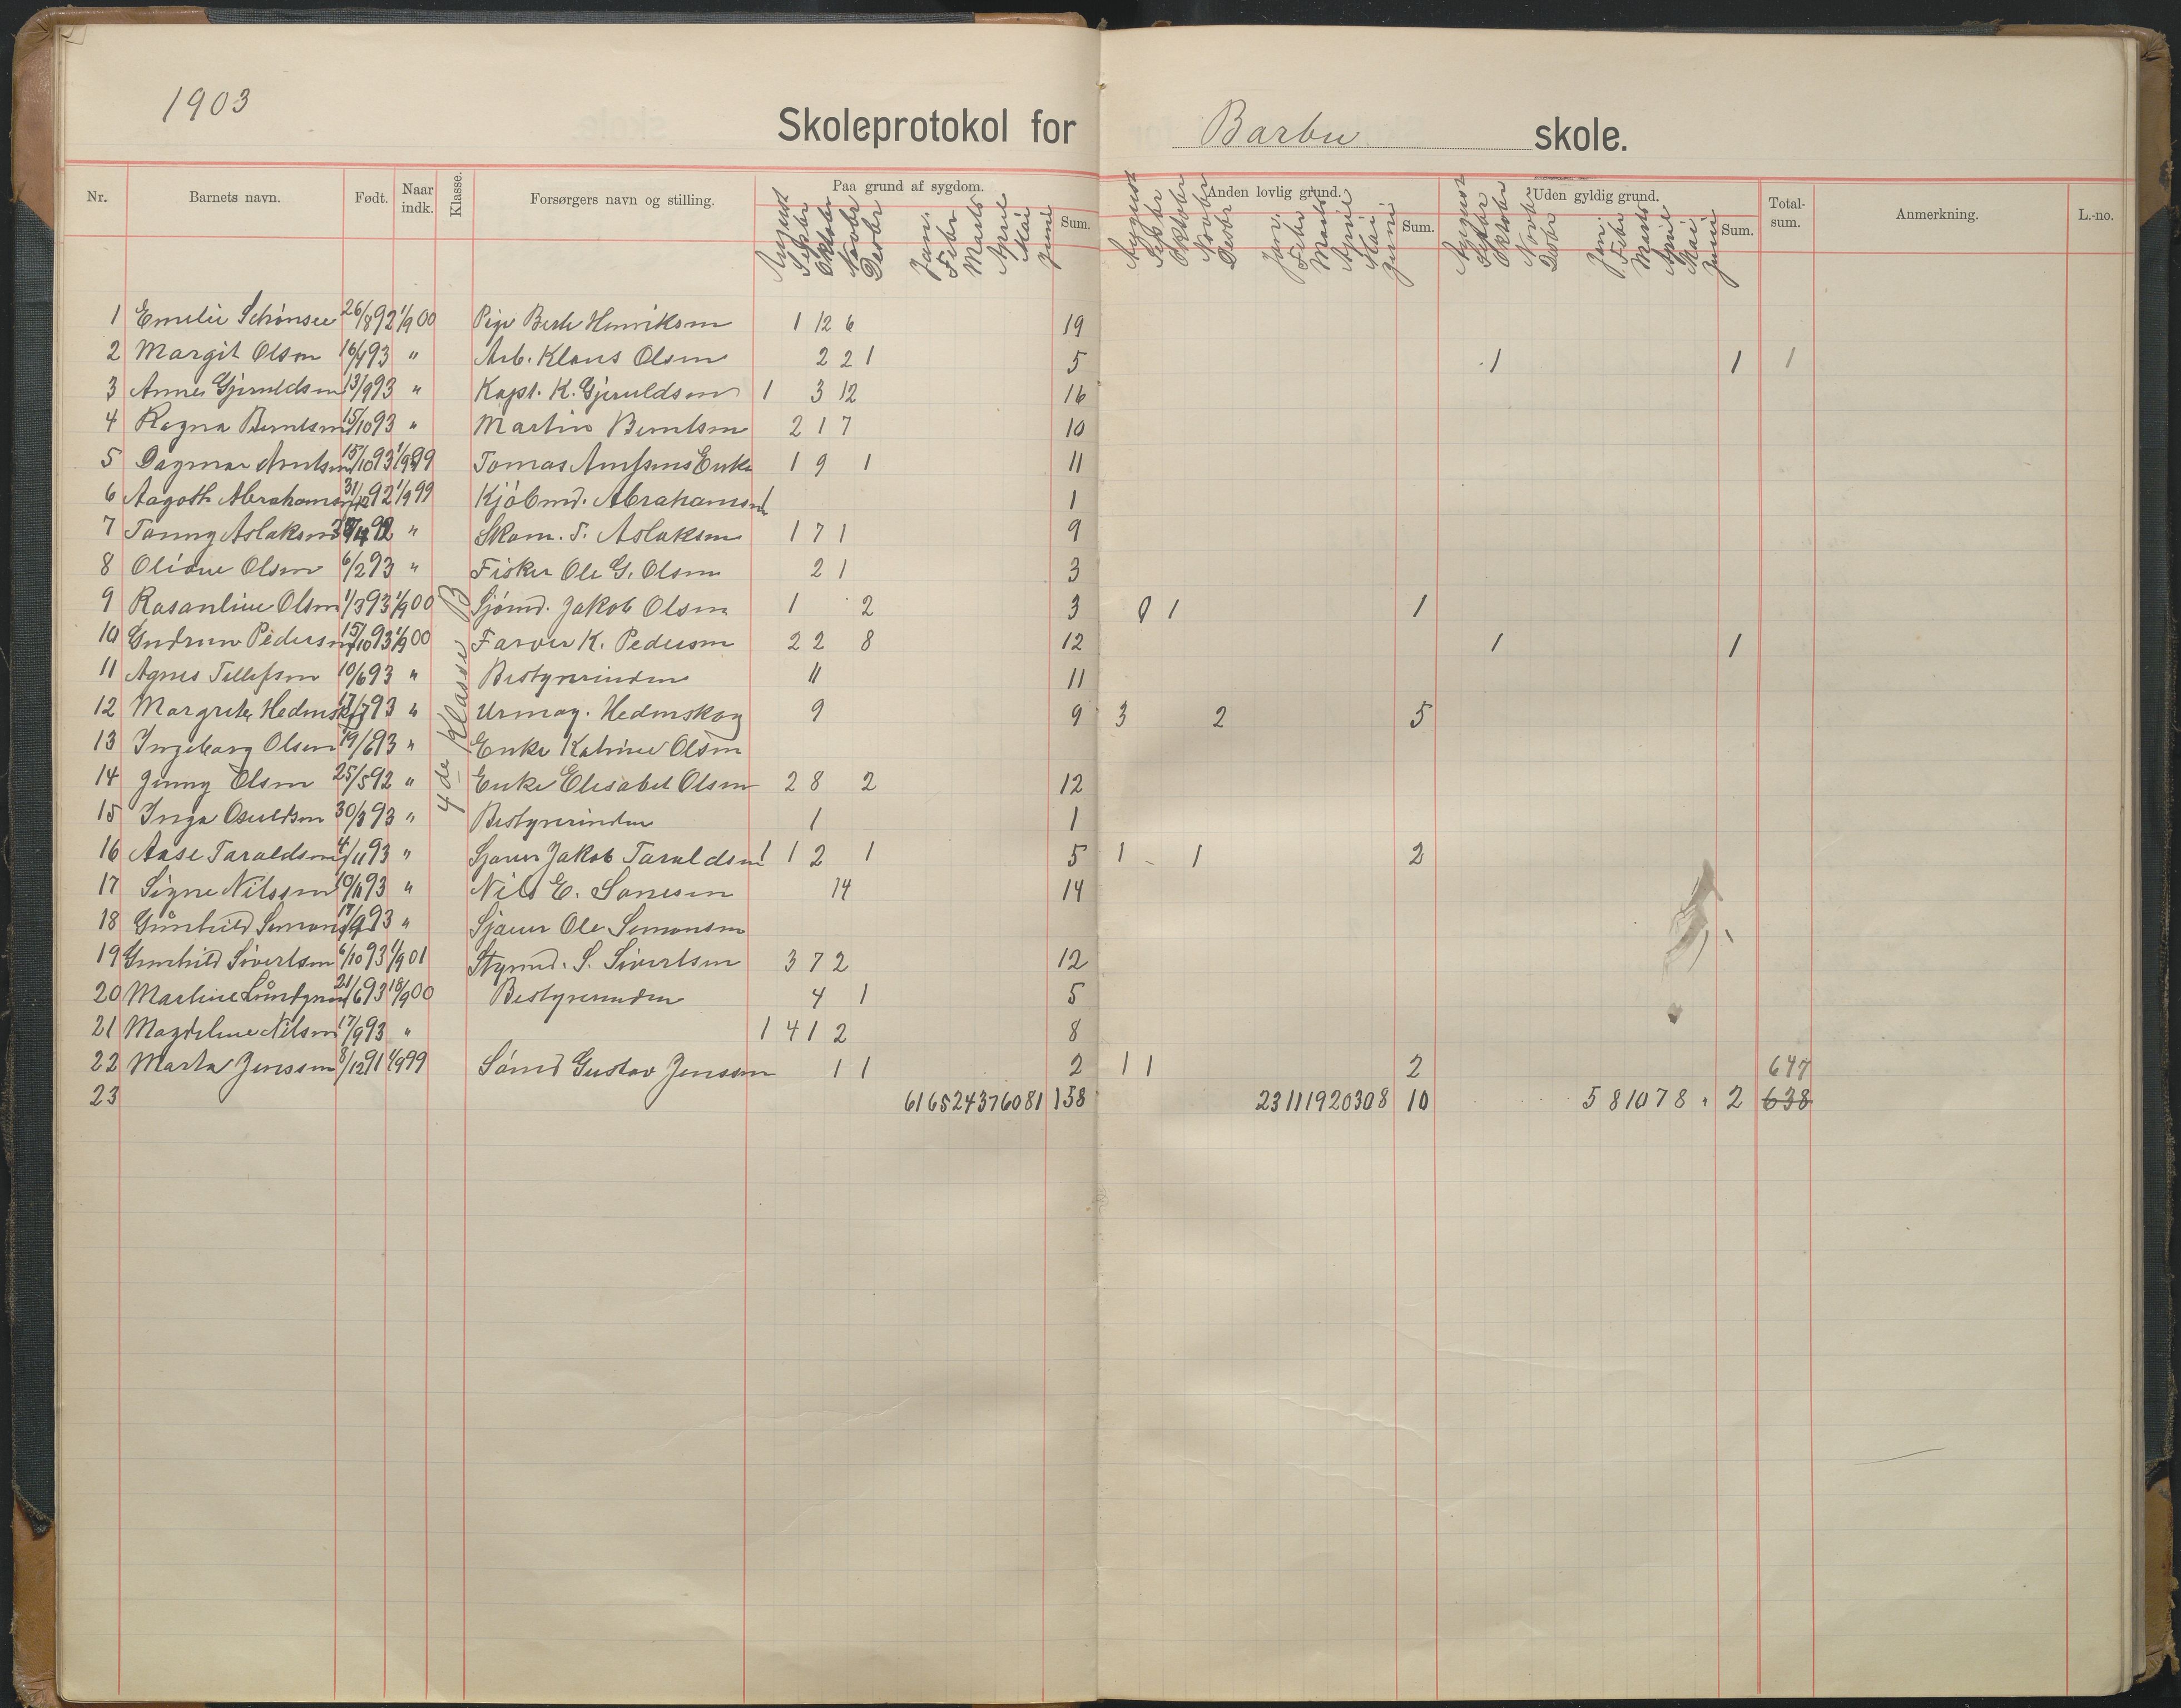 1903
Skoleprotokol for Barbu skole.
Nr. Barnets navn. Født. Naar indk. Klasse. Forsørgers navn og stilling. Paa grund af sygdom. Sum. Anden lovlig grund. Sum. Uden gyldig grund. Sum. Total-sum. Anmerkning. L.-no.
August Septbr Oktobr Novbr Desbr Jan. Febr Marts April Mai Juni August Septbr Oktobr Novbr Desbr Jan. Febr Marts April Mai Juni August Septbr Oktobr Novbr Desbr Jan. Febr Marts April Mai Juni
4de Klasse B
1 Emilie Schønsee 26/892 1/900 Henriksen 1 12 6 19
2 Margit Olsen 16/493 " Arb. Klaus Olsen 2 2 1 5 1 1 1
3 Anne Gjeruldsen 13/993 " Kapt. K. Gjeruldsen 1 3 12 16
4 Ragna Berntsen 15/1093 " Martin Berntsen 2 1 7 10
5 Dagmar Arntsen 15/1093 1/999 Tomas Arntsens Enke 1 9 1 11
6 Aagoth Abrahamsen 31/1292 1/999 Kjøbmd. Abrahamsen 1 1
7 Tanny Aslaksen " Skom. T. Aslaksen 1 7 1 9
8 Oline Olsen 6/293 " Fisker Ole G. Olsen 2 1 3
9 Rosanline Olsen 1/393 1/900 Sjømd. Jakob Olsen 1 2 3 0 1 1
10 Gudrun Pedersen 15/1093 1/900 Farver K. Pedersen 2 2 8 12 1 1
11 Agnes Tellefsen 10/693 " Bestyrerinden 11 11
12 Margrete Hedenskog 17/793 " Urmag. Hedenskog 9 9 3 2 5
13 Ingeborg Olsen 19/693 " Enke Katrine Olsen
14 Jenny Olsen 25/592 " Enke Elisabet Olsen 2 8 2 12
15 Inga Osuldsen 30/393 " Bestyrerinden 1 1
16 Aase Taraldsen 4/1193 " Sjauer Jakob Taraldsen 1 1 2 1 5 1 - 1 2
17 Signe Nilssen 10/1193 " Nils E. 14 14
18 Gunhild Simonsen 17/993 " Sjauer Ole Simonsen
19 Gunhild Sivertsen 6/1093 1/901 Styrmd. S. Sivertsen 3 7 2 12
20 Martine 21/693 18/900 Bestyrerinden 4 1 5
21 Magdeline Nilsen 17/993 " 1 4 1 2 8
22 Marta Jenssen 8/1291 1/999 Sømd Gustav Jenssen 1 1 2 1 1 2 647
23 616524376081 158 23111920308 10 581078 " 2 638